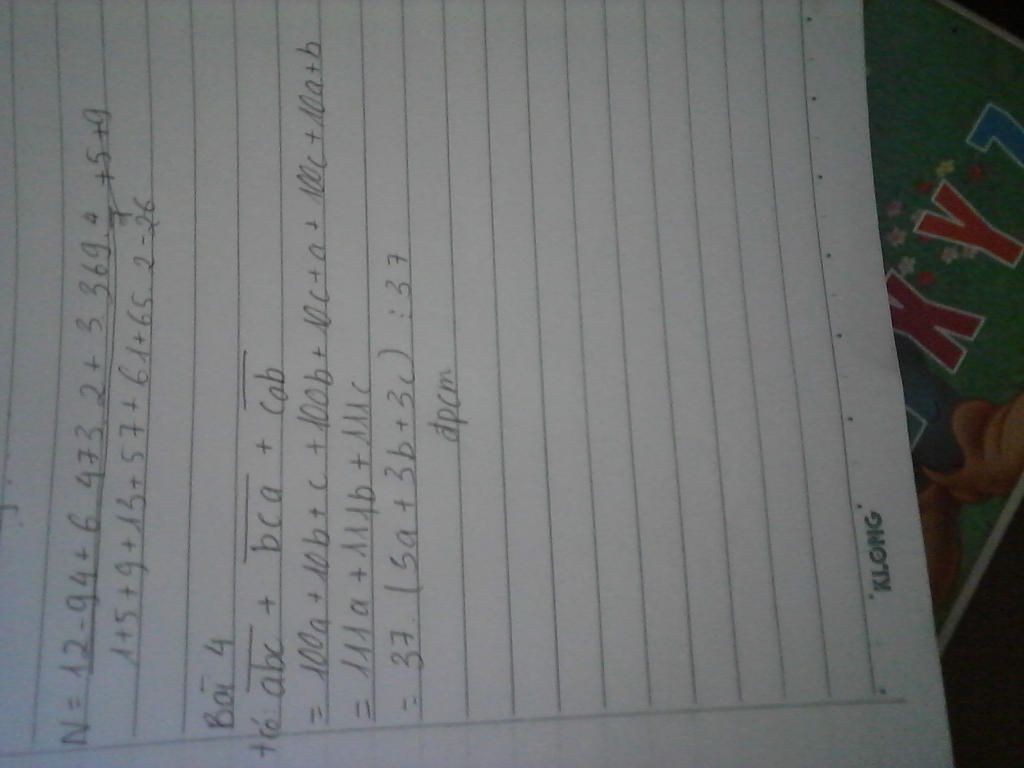 N = 12-94+6.473.2+3.369.4+5+9
1+5+9+13+57+61+65.2-26
Bài 4
+có abc + bca + cab
= 100a+10b+c+100b+10c+a+100c+10a+b
= 111a+111b+111c
= 37.(3a+3b+3c) : 37
đpcm
"KLONG"
X Y Z